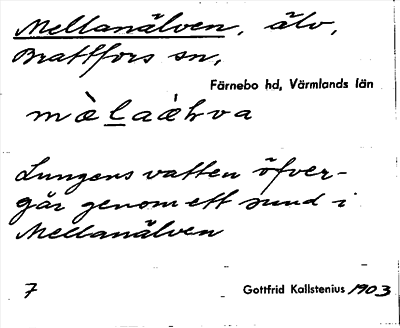 Mellanälven, älv,
Brattfors sn,
Färnebo hd, Värmlands län
mὰlaὰhva
Lungens vatten öfver-
går genom ett sund i
Mellanälven
7
Gottfrid Kallstenius 1903